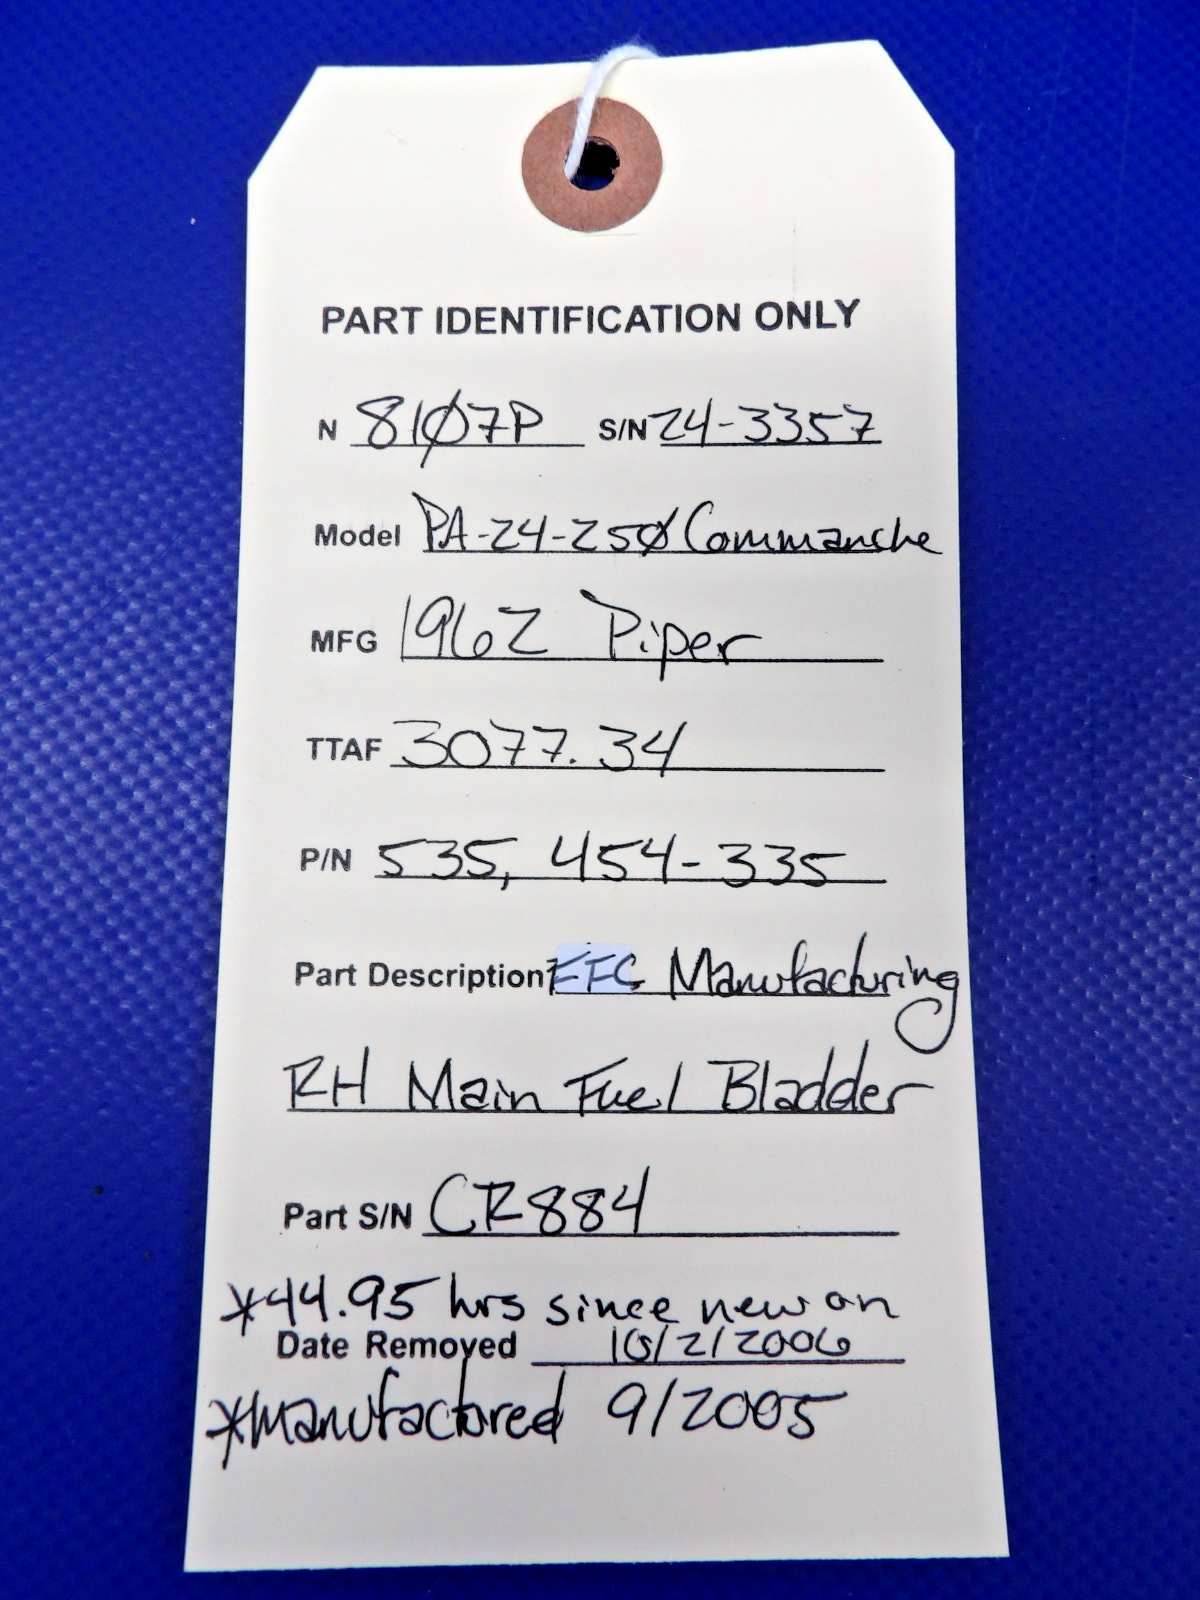 PART IDENTIFICATION ONLY
N 81Ø7P S/N 24-3357
Model PA-24-25Ø Commanche
MFG 1962 Piper
TTAF 3077.34
P/N 535, 454-335
Part Description EFC Manufacturing
RH Main Fuel Bladder
Part S/N CR884
*44.95 hrs since new on
Date Removed 10/2/2006
*manufactored 9/2005